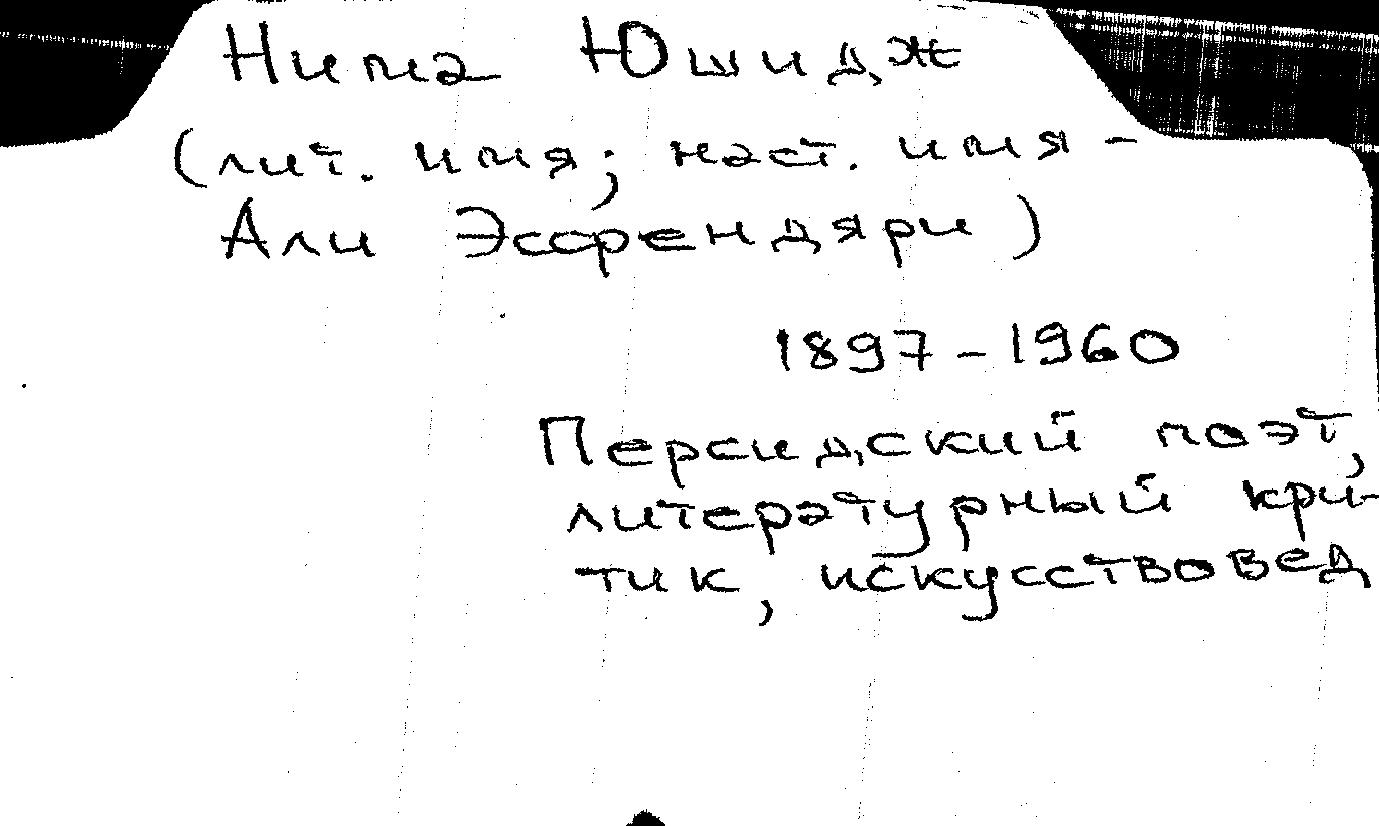 Нима Юшидж
(лит. имя; наст. имя -
Али Эсфендяри)
1897-1960
Персидский поэт,
литературный кри-
тик, искусствовед